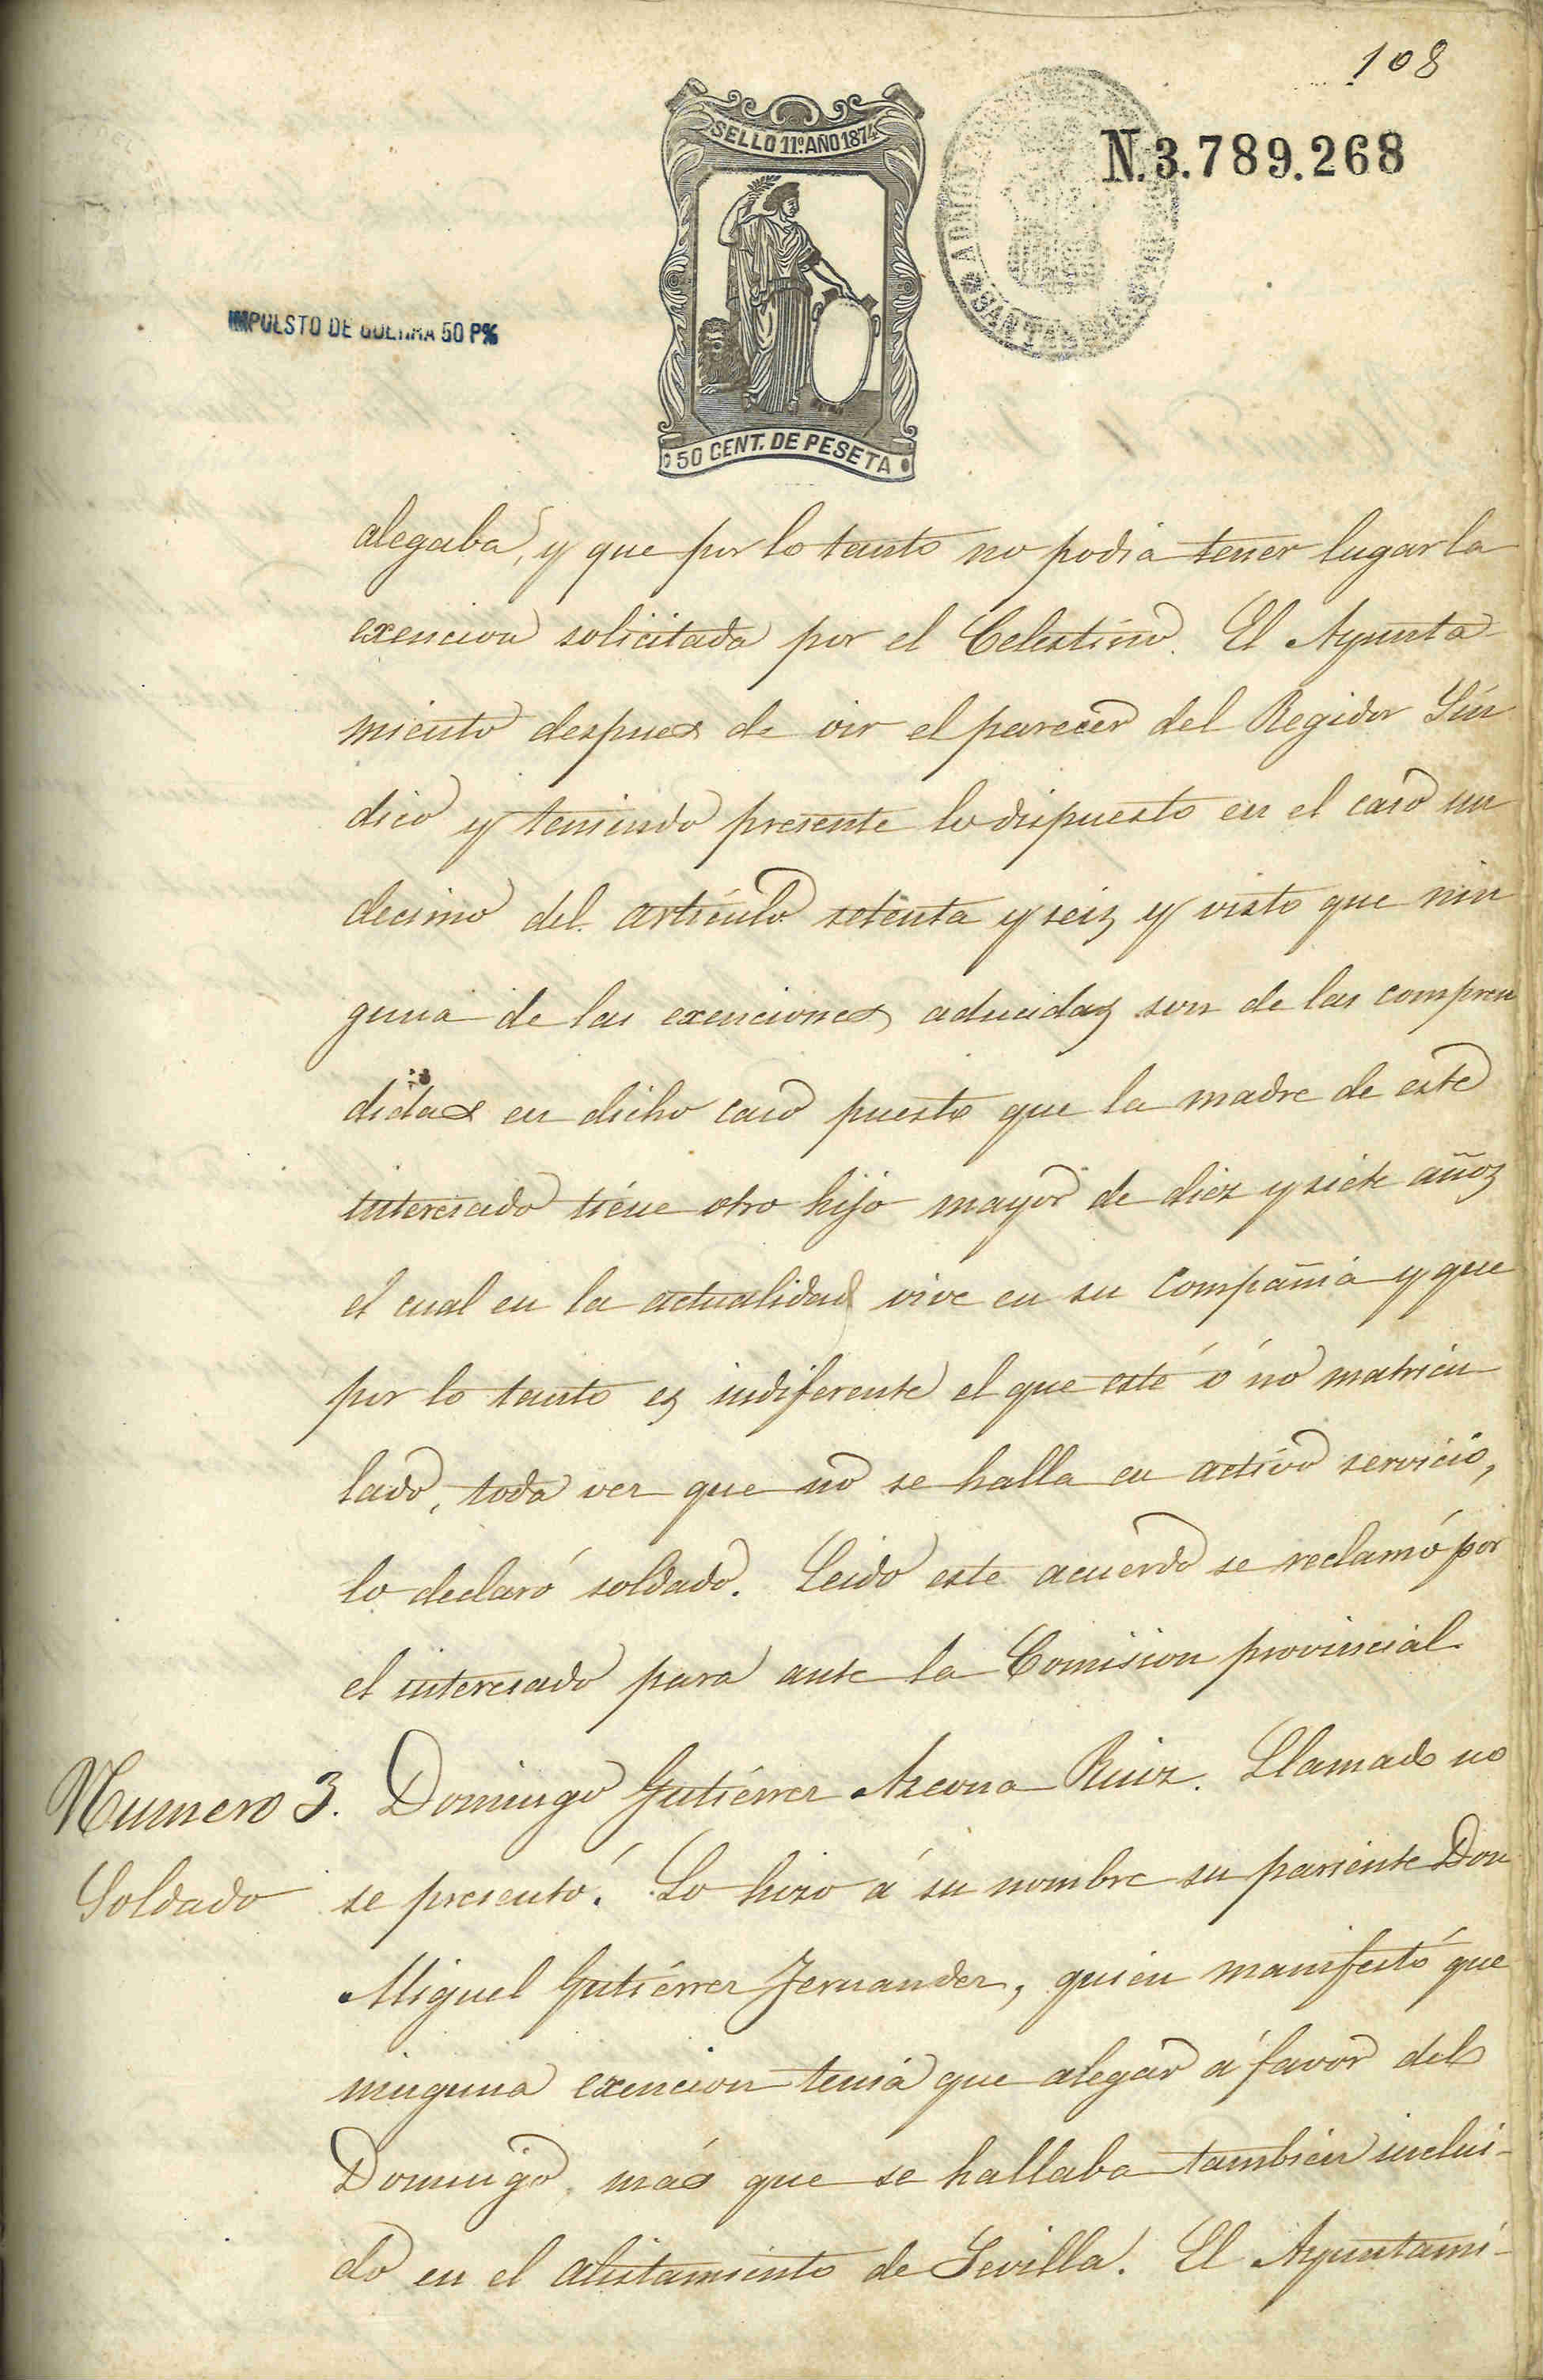 108
SELLO 11º AÑO 1874
N.3.789.268
IMPUESTO DE GUERRA 50 P%
50 CENT. DE PESETA
alegaba, y que por lo tanto no podia tener lugar la
exencion solicitada por el Celestino. El Ayunta-
miento despues de oir el parecer del Regidor Sin
dico y teniendo presente lo dispuesto en el caso un
decimo del articulo setenta y seis y visto que nin
guna de las exenciones aducidas son de las compren
didas en dicho caso puesto que la madre de este
interesado tiene otro hijo mayor de diez y siete años
el cual en la actualidad vive en su compañia y que
por lo tanto es indiferente el que esté ó nó matricu
lado, toda vez que no se halla en activo servicio,
lo declaró soldado. Leido este acuerdo se reclamó por
el interesado para ante la Comision provincial.
Numero 3. Domingo Gutiérrez Azcona Ruiz. Llamado no
Soldado se presentó. Lo hizo á su nombre su pariente Don
Miguel Gutiérrez Fernandez, quien manifestó que
ninguna exencion tenia que alegar á favor del
Domingo, más que se hallaba tambien inclui-
do en el alistamiento de Sevilla. El Ayuntami-